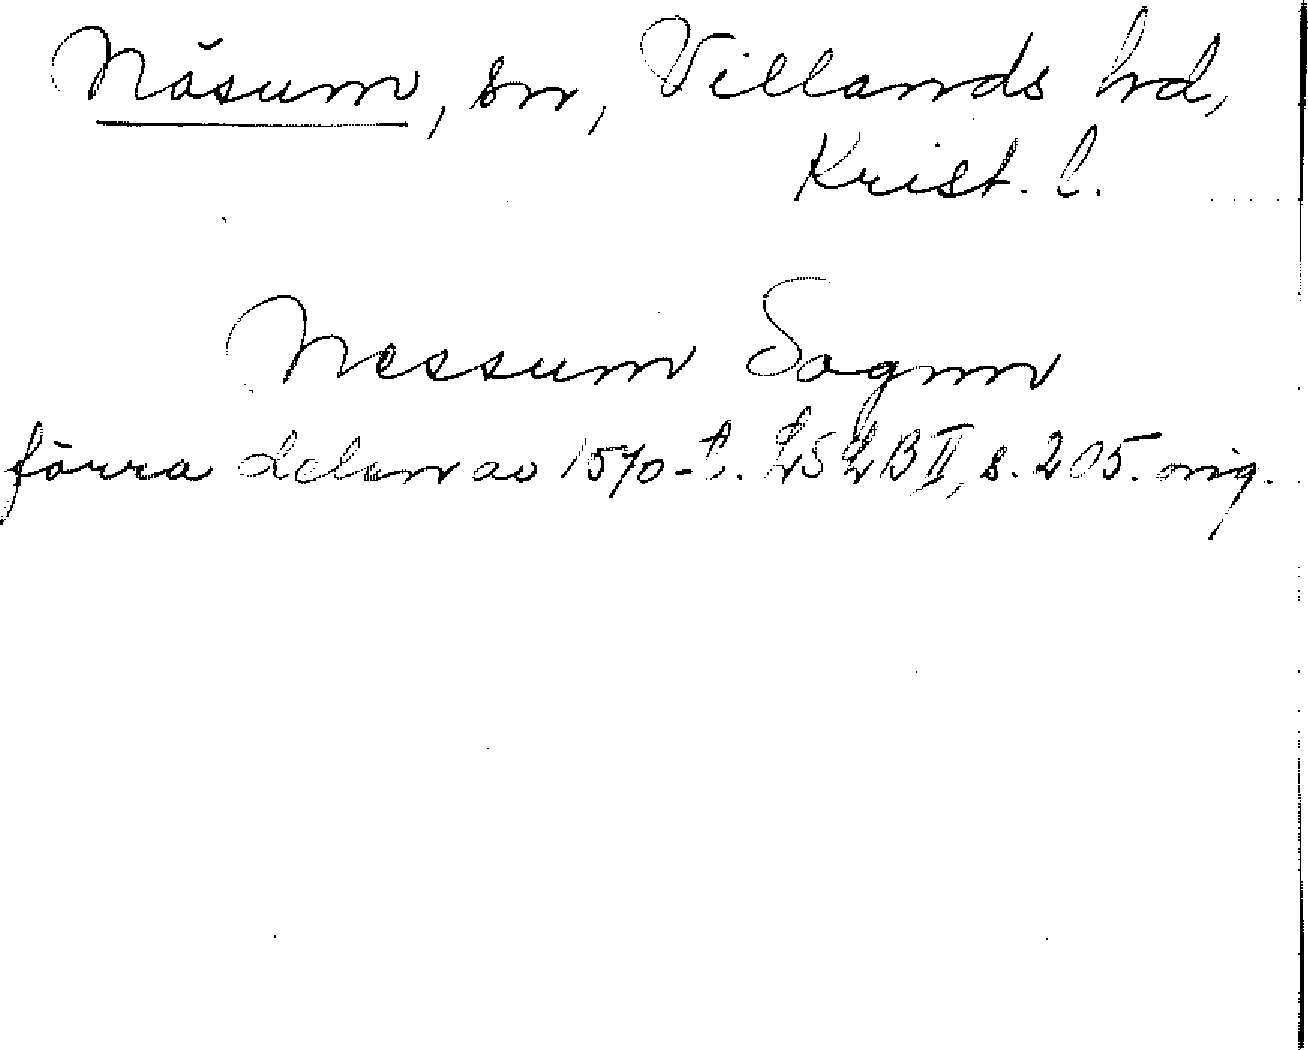 Näsum, sn, Villands hd,
Krist. l.
Nessum Sognn
förra delen av 1570-t. LSLB II, s. 205. orig.